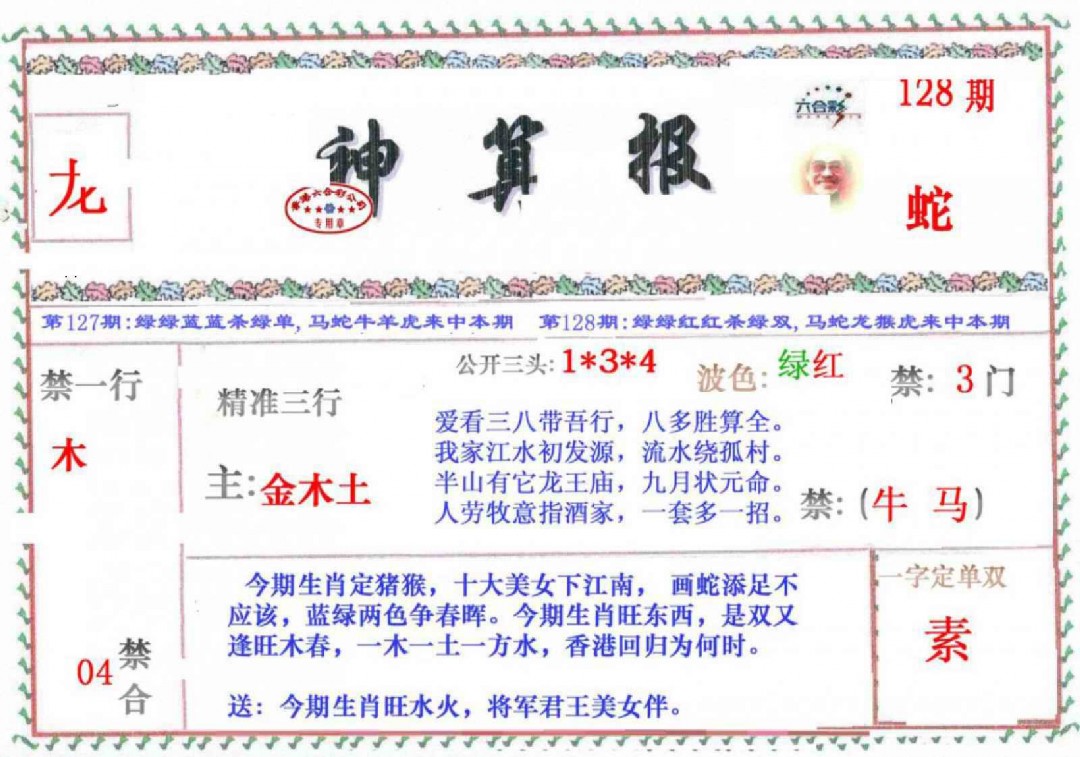 128 期
六合彩
神算报
香港六合彩公司
专用章
龙
蛇
第127期:绿绿蓝蓝杀绿单,马蛇牛羊虎来中本期 第128期:绿绿红红杀绿双,马蛇龙猴虎来中本期
禁一行
木
精准三行
主:金木土
公开三头:1*3*4
波色:绿红
禁: 3门
爱看三八带吾行，八多胜算全。
我家江水初发源，流水绕孤村。
半山有它龙王庙，九月状元命。
人劳牧意指酒家，一套多一招。
禁:(牛 马)
今期生肖定猪猴，十大美女下江南， 画蛇添足不
应该，蓝绿两色争春晖。今期生肖旺东西，是双又
逢旺木春，一木一土一方水，香港回归为何时。
送：今期生肖旺水火，将军君王美女伴。
04
禁合
一字定单双
素